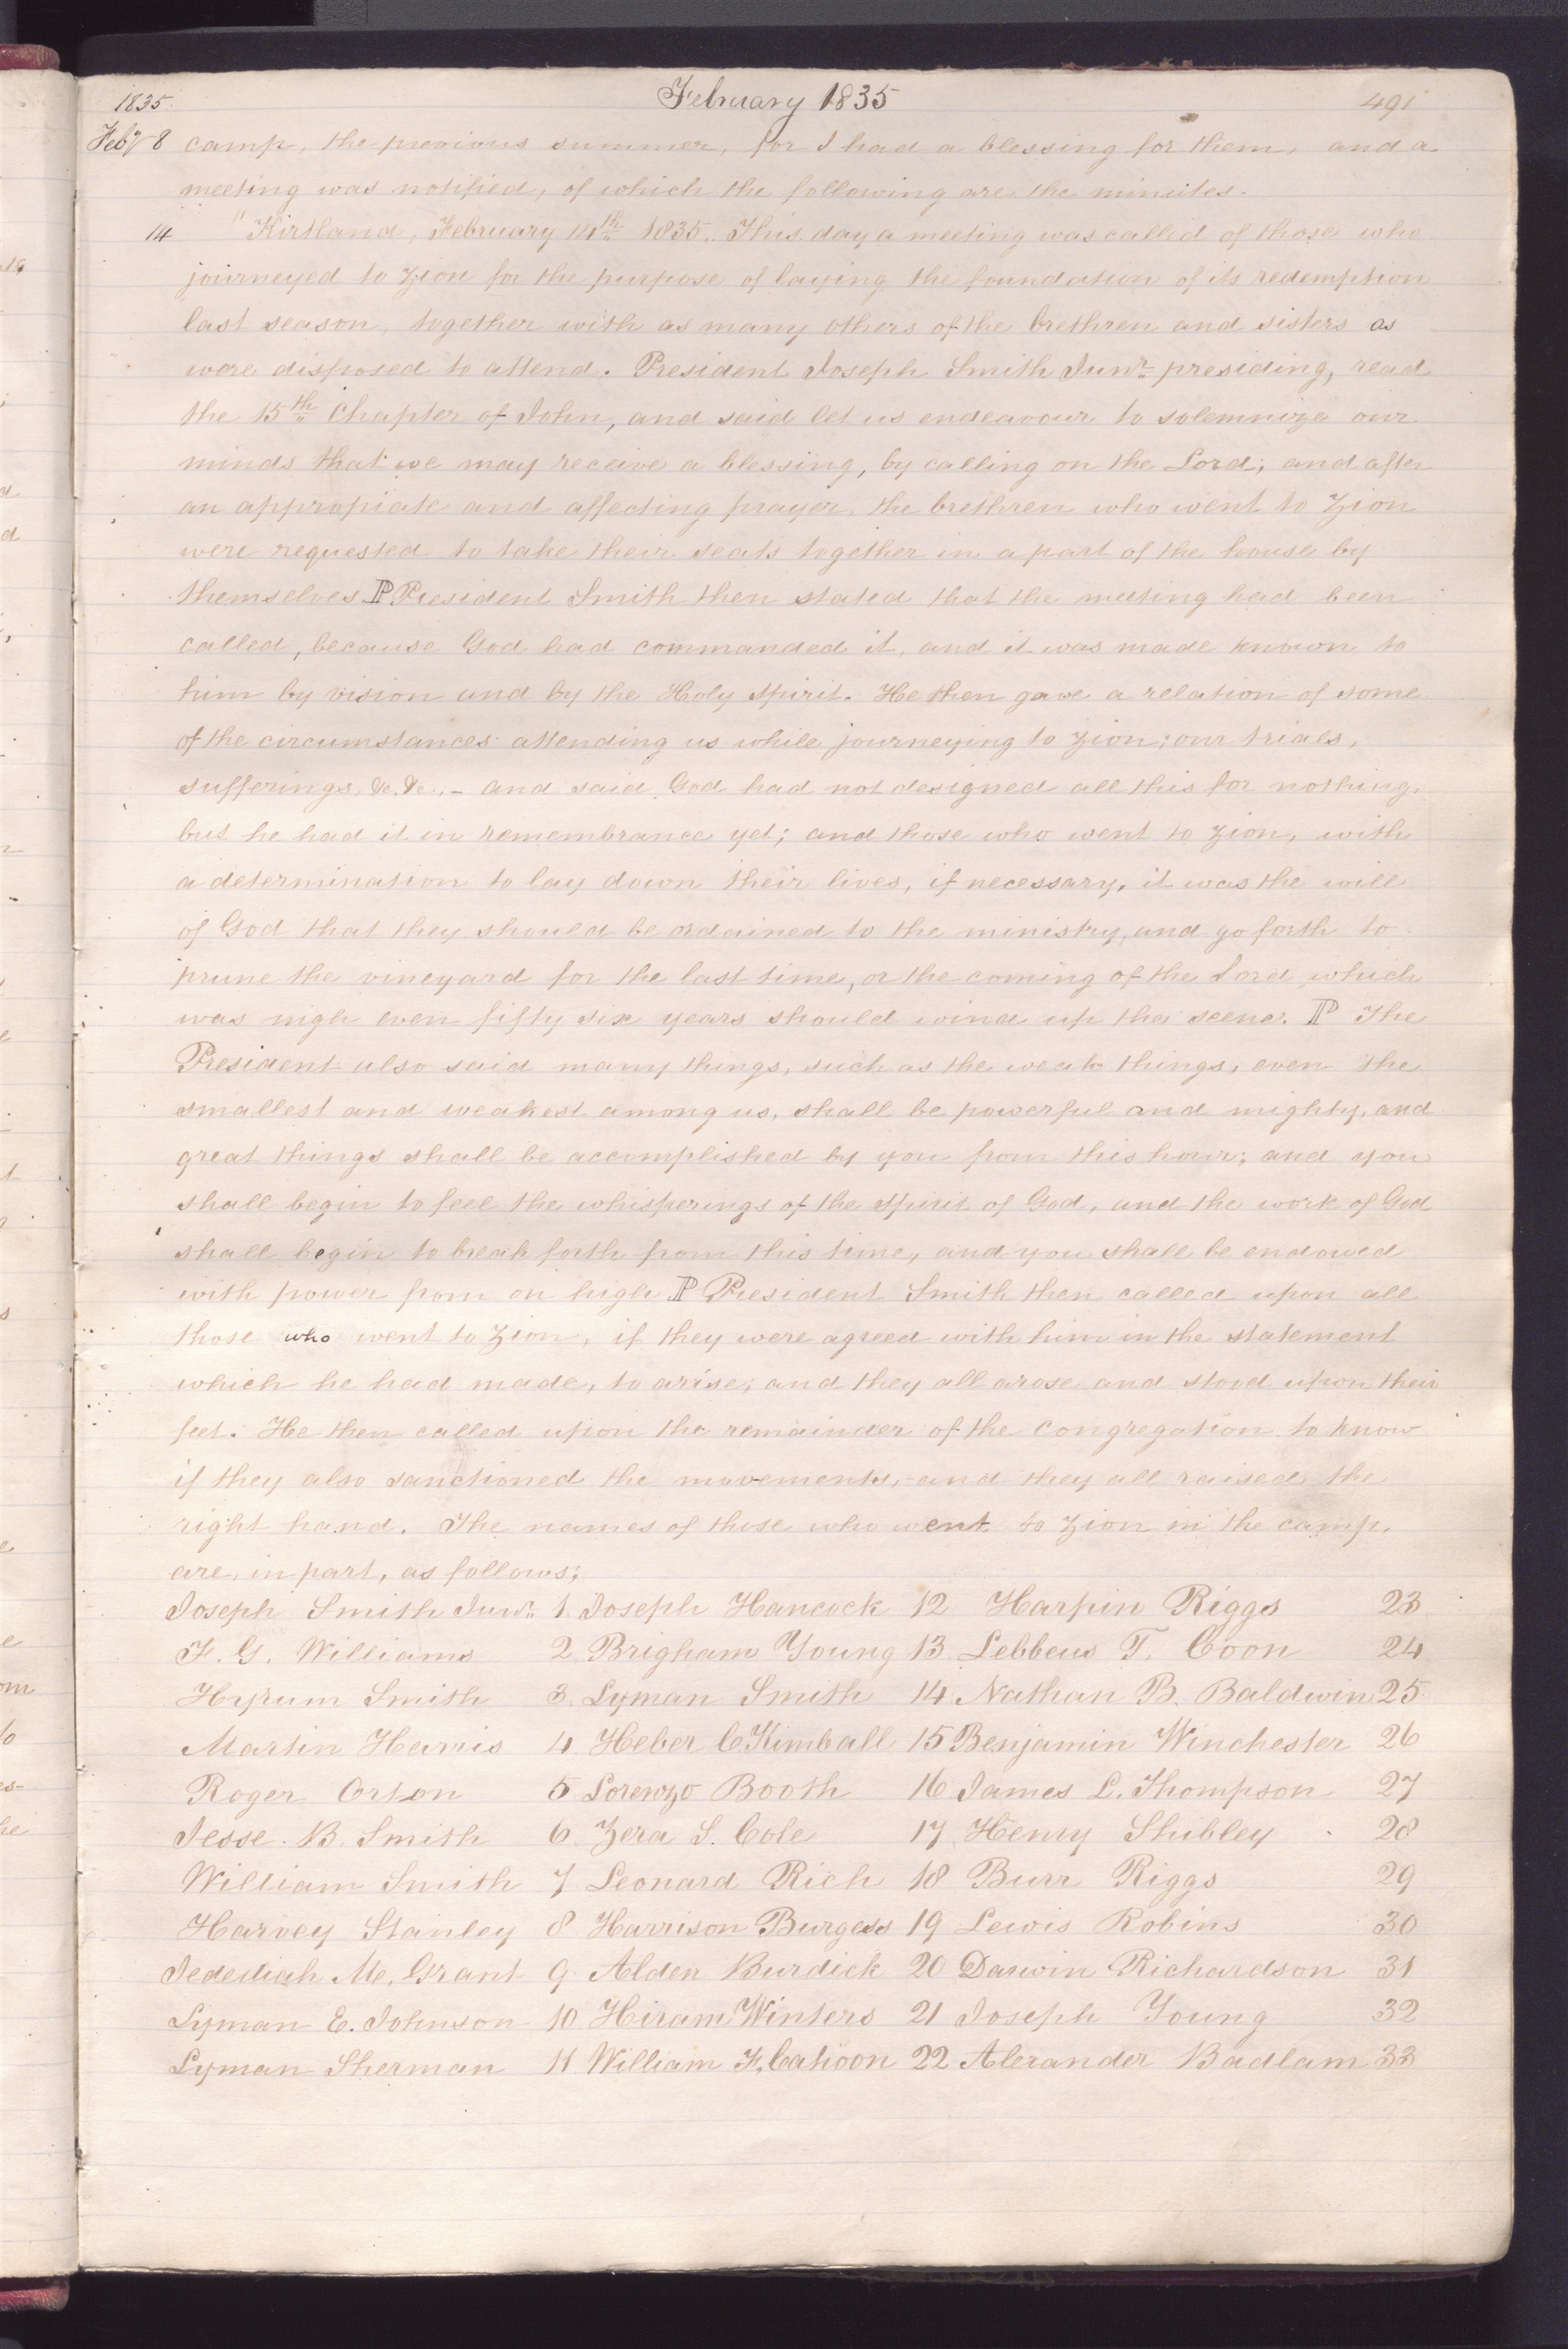 1835. February 1835 491
Feby 8 camp, the previous summer, for I had a blessing for them, and a
meeting was notified, of which the following are the minutes.
14 "Kirtland, February 14th 1835. This day a meeting was called of those who
journeyed to Zion for the purpose of laying the foundation of its redemption
last season, together with as many others of the brethren and sisters as
were disposed to attend. President Joseph Smith Junr. presiding, read
the 15th Chapter of John, and said let us endeavour to solemnize our
minds that we may receive a blessing, by calling on the Lord; and after
an appropiate and affecting prayer, the brethren who went to Zion
were requested to take their seats together in a part of the house by
themselves. P President Smith then stated that the meeting had been
called, because God had commanded it, and it was made known to
him by vision and by the Holy Spirit. He then gave a relation of some
of the circumstances attending us while journeying to Zion; our trials,
sufferings, &c, &c.– and said God had not designed all this for nothing,
but he had it in remembrance yet; and those who went to Zion, with
a determination to lay down their lives, if necessary, it was the will
of God that they should be ordained to the ministry, and go forth to
prune the vineyard for the last time, or the coming of the Lord, which
was nigh even fifty six years should wind up the scene. P The
President also said many things, such as the weak things, even the
smallest and weakest among us, shall be powerful and mighty, and
great things shall be accomplished by you from this hour; and you
shall begin to feel the whisperings of the Spirit of God, and the work of God
shall begin to break forth from this time, and you shall be endowed
with power from on high P President Smith then called upon all
those who went to Zion, if they were agreed with him in the statement
which he had made, to arise; and they all arose and stood upon their
feet. He then called upon the remainder of the congregation to know
if they also sanctioned the movements, and they all raised the
right hand. The names of those who went to Zion in the camp,
are, in part, as follows;
Joseph Smith Junr. 1 Joseph Hancock 12 Harpin Riggs 23
F. G. Williams 2 Brigham Young 13 Lebbeus T. Coon 24
Hyrum Smith 3 Lyman Smith 14 Nathan B. Baldwin 25
Martin Harris 4 Heber C Kimball 15 Benjamin Winchester 26
Roger Orton 5 Lorenzo Booth 16 James L. Thompson 27
Jesse B. Smith 6 Zera S. Cole 17 Henry Shibley 28
William Smith 7 Leonard Rich 18 Burr Riggs 29
Harvey Stanley 8 Harrison Burgess 19 Lewis Robins 30
Jedediah M. Grant 9 Alden Burdick 20 Darwin Richardson 31
Lyman E. Johnson 10 Hiram Winters 21 Joseph Young 32
Lyman Sherman 11 William F. Cahoon 22 Alexander Badlam 33